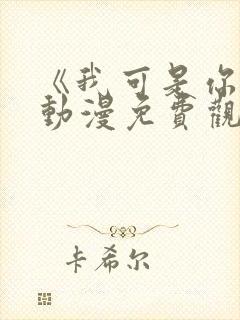 《我可是你
動漫免費觀
卡希尔